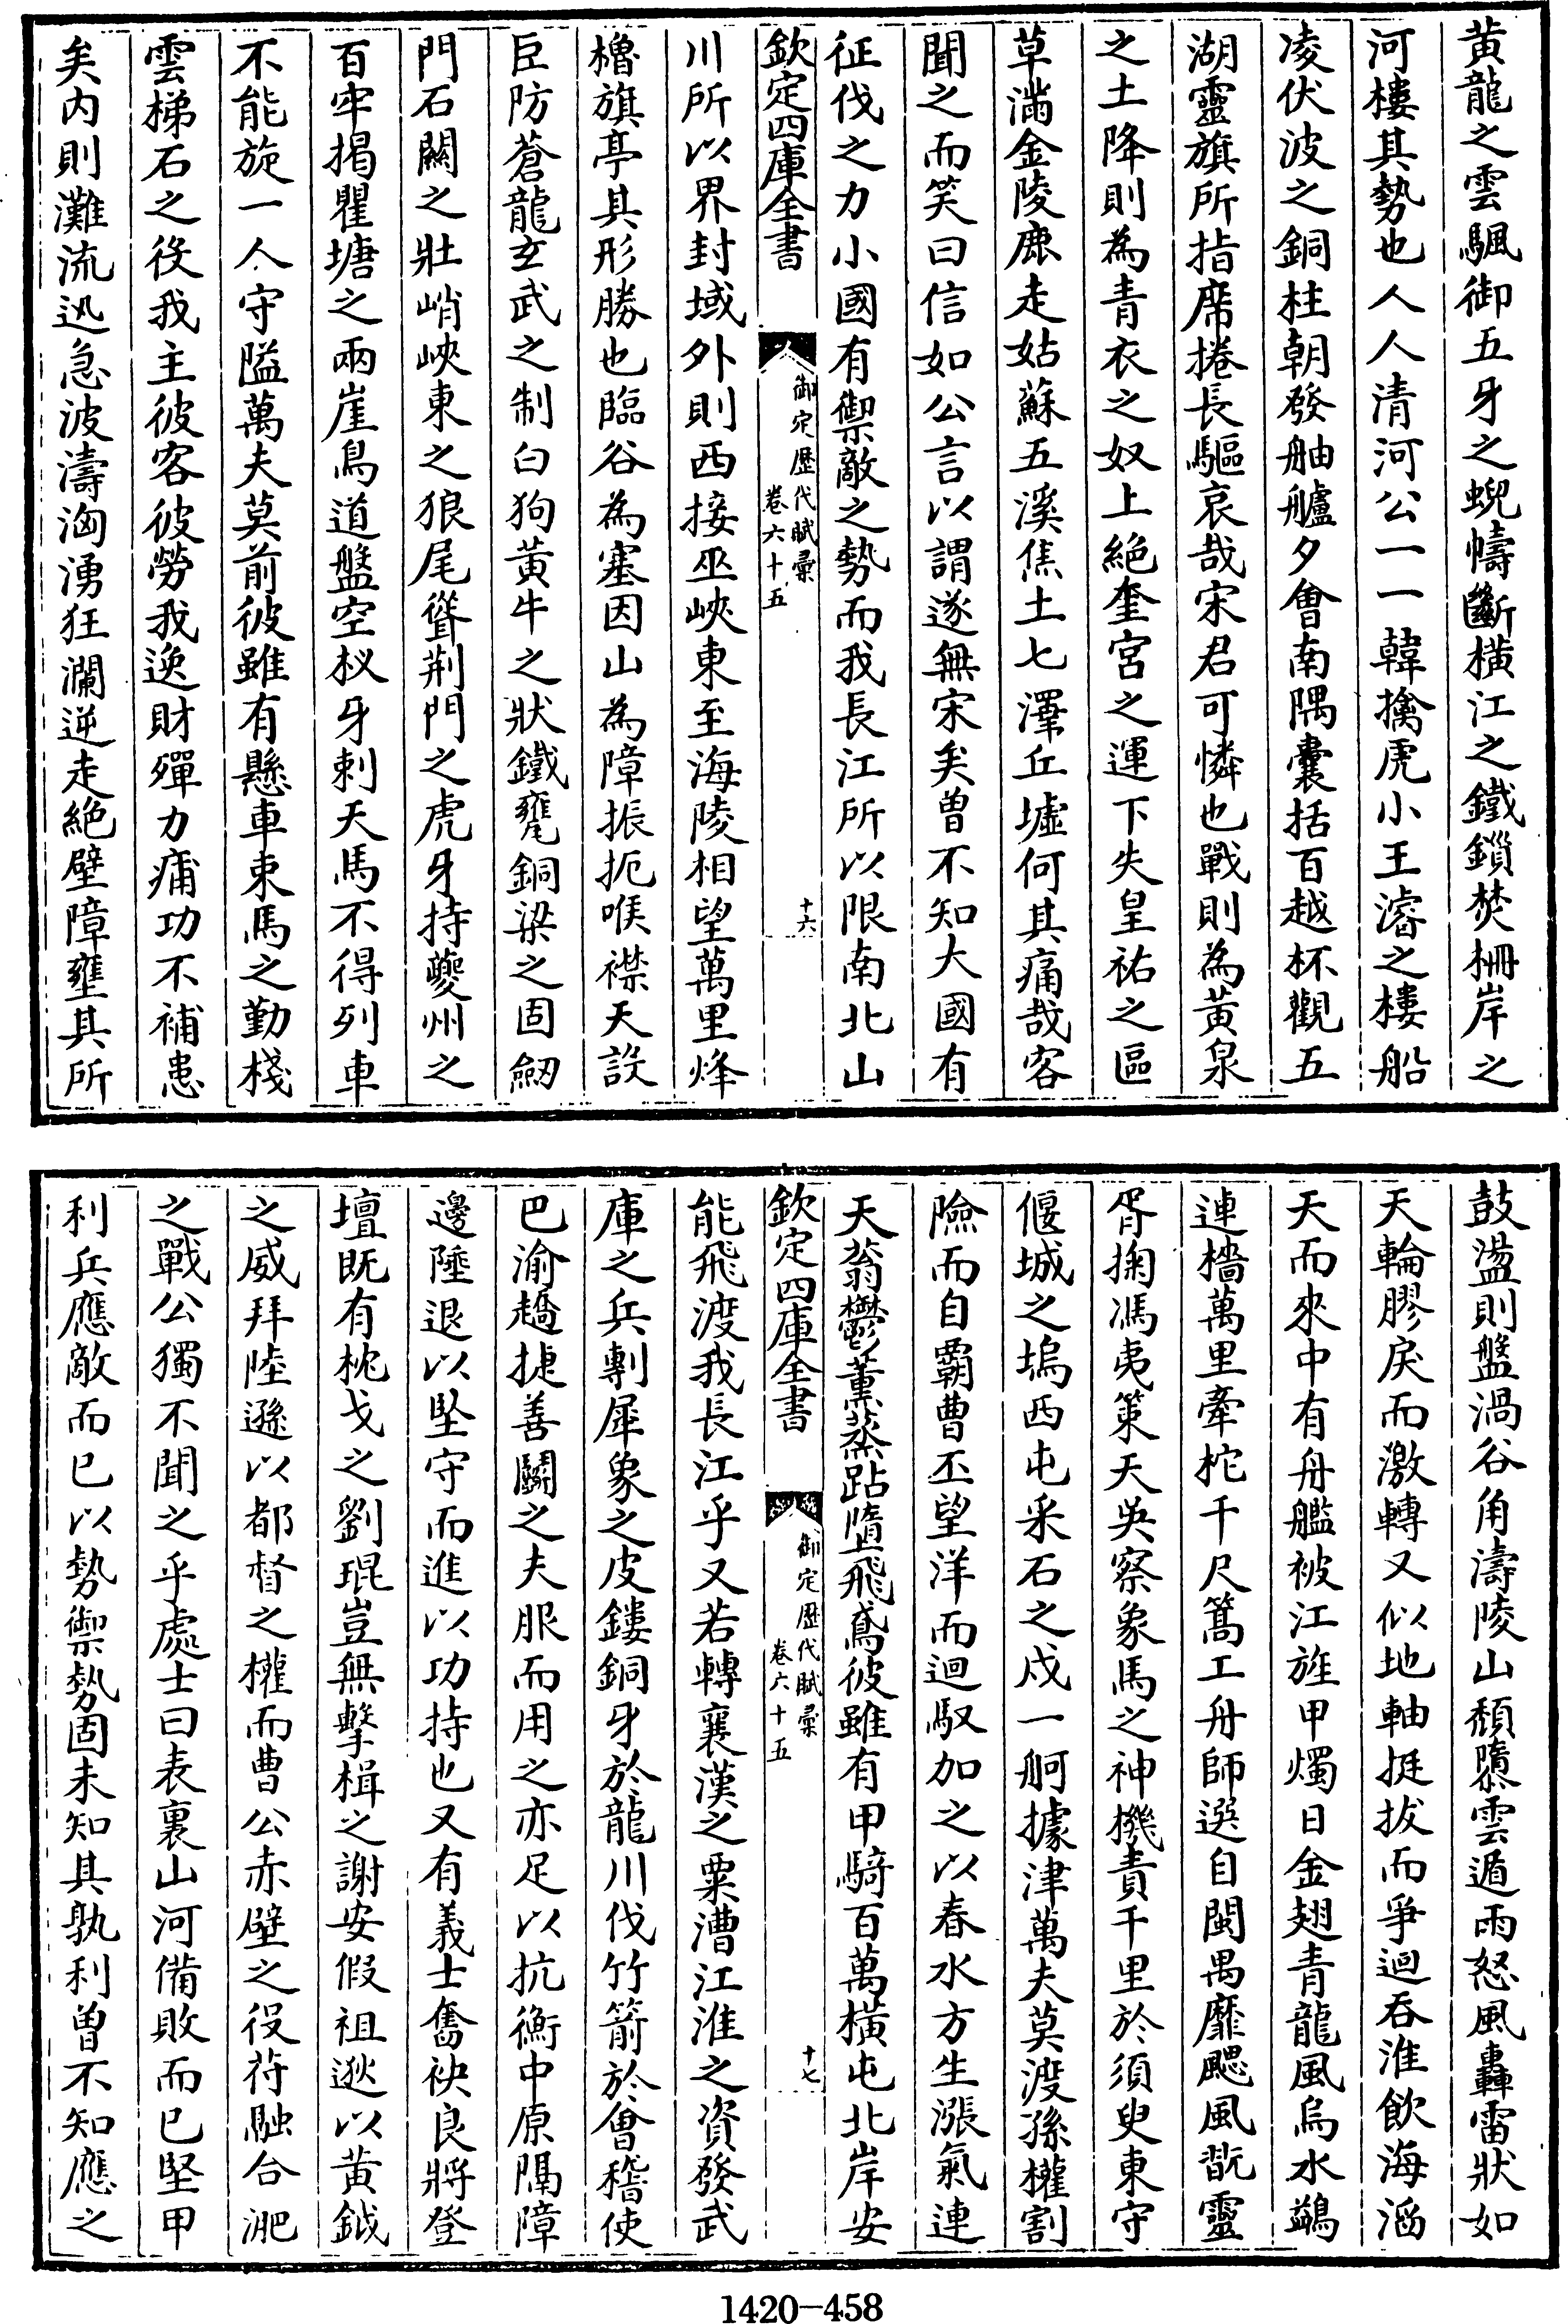 黃龍之雲颿御五牙之蜺幬斷橫江之鐵鎻焚柵岸之
河樓其勢也人人清河公一一韓擒虎小王濬之樓船
凌伏波之銅柱朝發舳艫夕會南隅囊括百越杯觀五
湖靈旗所指席捲長驅哀哉宋君可憐也戰則為黃泉
之土降則為青衣之奴上絕奎宮之運下失皇祐之區
草滿金陵鹿走姑蘇五溪焦土七澤丘墟何其痛哉客
聞之而笑曰信如公言以謂遂無宋矣曽不知大國有
征伐之力小國有禦敵之勢而我長江所以限南北山
欽定四庫全書
御定歴代賦彙
卷六十五
十六
川所以界封域外則西接巫峽東至海陵相望萬里烽
櫓旗亭其形勝也臨谷為塞因山為障振扼喉襟天設
巨防蒼龍玄武之制白狗黃牛之狀鐵甕銅梁之固劒
門石闕之壯峭峽東之狼尾聳荆門之虎牙持夔州之
百牢揭瞿塘之兩崖鳥道盤空杈牙刺天馬不得列車
不能旋一人守隘萬夫莫前彼雖有懸車束馬之勤棧
雲梯石之役我主彼客彼勞我逸財殫力痡功不補患
矣内則灘流迅急波濤洶湧狂瀾逆走絶壁障壅其所
鼓盪則盤渦谷角濤陵山頽隳雲遁雨怒風轟雷狀如
天輪膠戾而激轉又似地軸挺拔而爭迴吞淮飲海涵
天而來中有舟艦被江旌甲燭日金翅青龍風烏水鷁
連檣萬里牽柁千尺篙工舟師選自閩禺靡颸風翫靈
胥掬馮夷策天吳察象馬之神機責千里於須臾東守
偃城之塢西屯采石之戍一舸據津萬夫莫渡孫權割
險而自霸曹丕望洋而迴馭加之以春水方生漲氣連
天蓊鬱薰蒸跕墮飛鳶彼雖有甲騎百萬橫屯北岸安
欽定四庫全書
御定歴代賦彙
卷六十五
十七
能飛渡我長江乎又若轉襄漢之粟漕江淮之資發武
庫之兵剸犀象之皮鏤銅牙於龍川伐竹箭於會稽使
巴渝趫捷善鬬之夫服而用之亦足以抗衡中原隔障
邊陲退以堅守而進以功持也又有義士奮袂良將登
壇既有枕戈之劉琨豈無擊楫之謝安假祖逖以黃鉞
之威拜陸遜以都督之權而曹公赤壁之役苻融合淝
之戰公獨不聞之乎處士曰表裏山河備敗而已堅甲
利兵應敵而已以勢禦勢固未知其孰利曽不知應之
1420-458